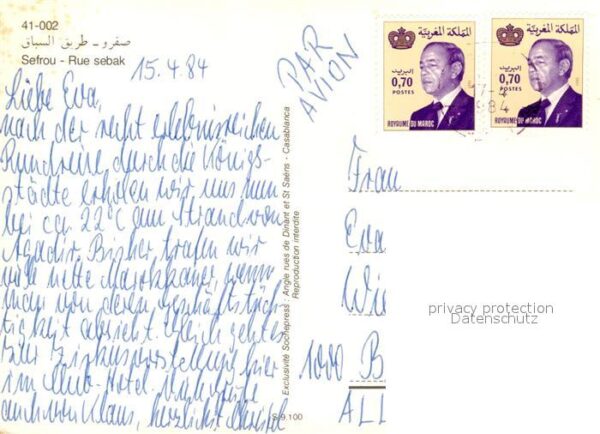 41-002
صفرو - طريق السباق
Sefrou - Rue sebak
15.4.84
PAR
AVION
Liebe Eva,
nach der recht erlebnisreichen
Rundreise durch die Königs-
städte erholen wir uns nun
bei ca. 22°C am Strand von
Agadir. Bisher trafen wir
viele nette Marokkaner, wenn
man von deren Geschäftstüch-
tigkeit absieht. Gleich geht es
zur Zirkusvorstellung hier
im Club-Hotel. Viele Grüße
auch von Klaus, herzlichst
Exclusivité Sochepress : Angle rues de Dinant et St Saëns - Casablanca
Reproduction interdite
S 9.100
المملكة المغربية
البريد
0,70
POSTES
ROYAUME DU MAROC
المملكة المغربية
البريد
0,70
POSTES
ROYAUME DU MAROC
1984
Frau
Eva
Wi
1000 B
ALL
privacy protection
Datenschutz